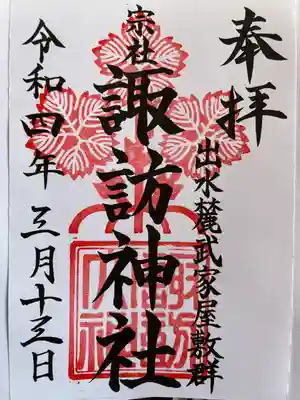 奉拝
出水麓武家屋敷群
宗社
諏訪神社
令和四年
三月十三日